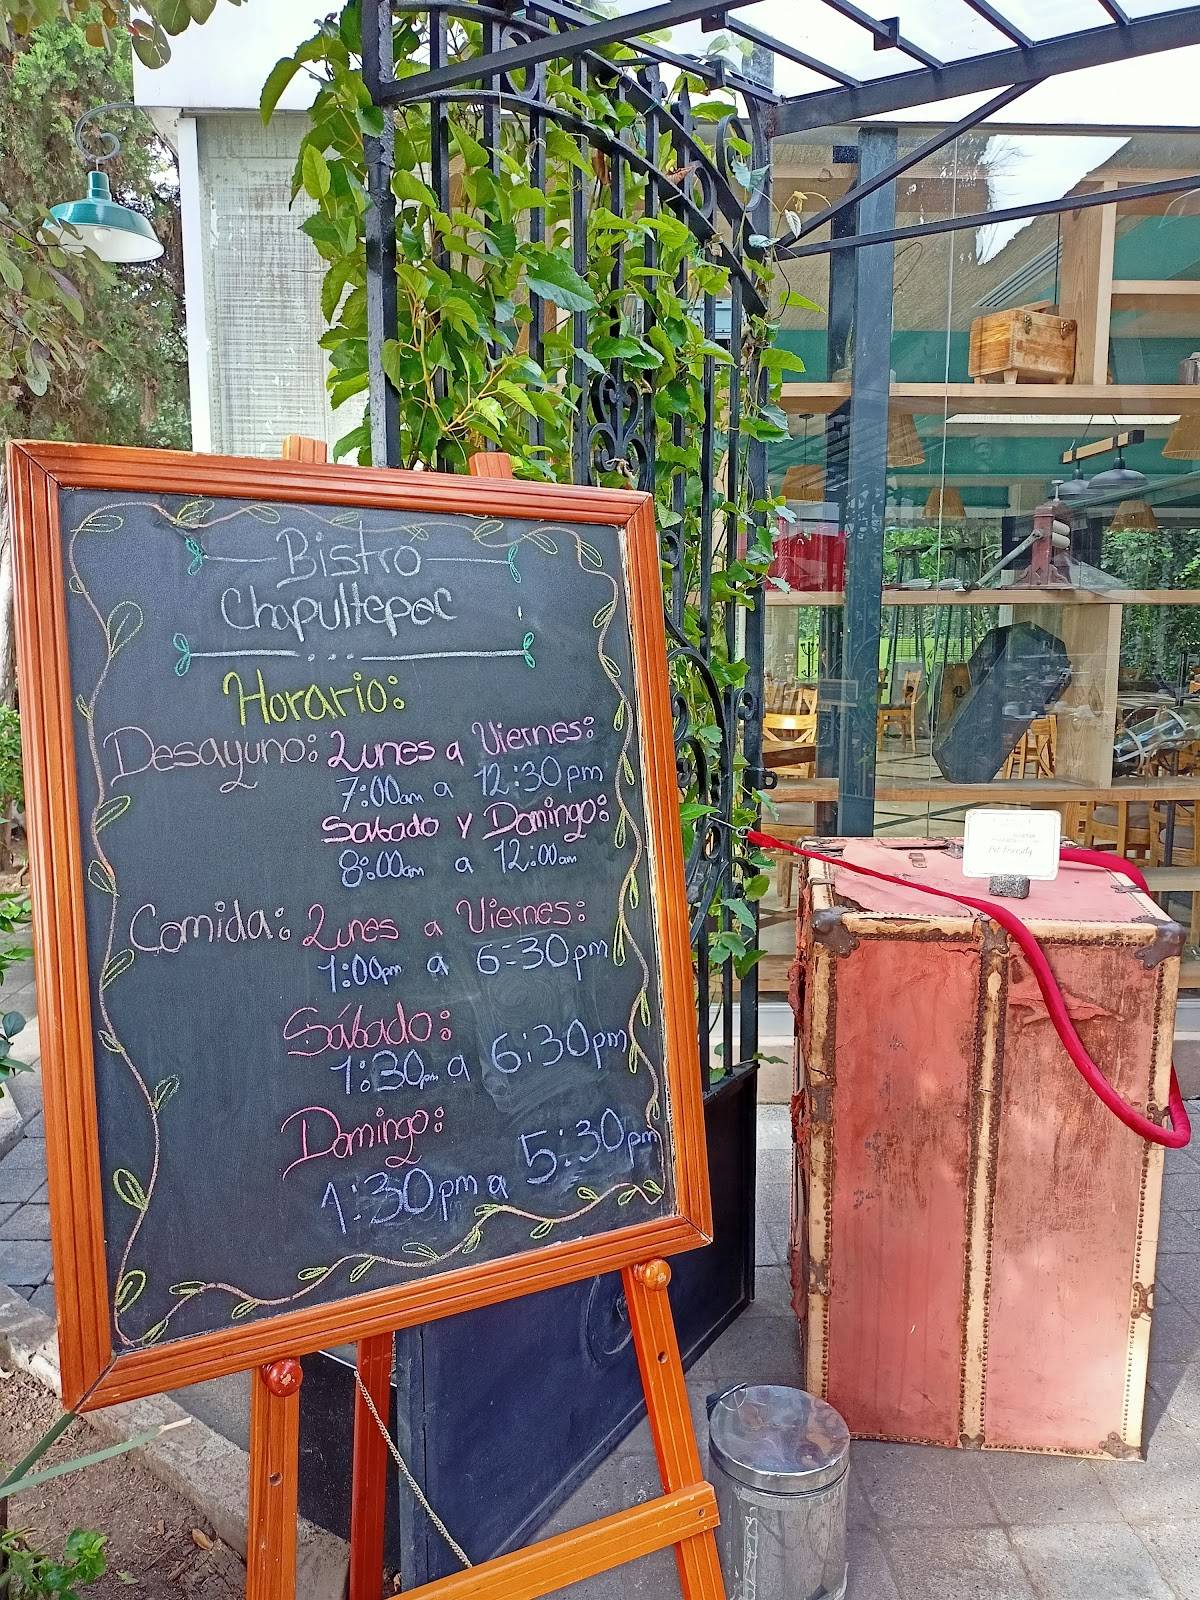 Bistro
Chapultepec
Horario:
Desayuno: Lunes a Viernes:
7:00am a 12:30pm
Sabado y Domingo:
8:00am a 12:00am
Comida: Lunes a Viernes:
1:00pm a 6:30pm
Sábado:
1:30pm a 6:30pm
Domingo:
1:30pm a 5:30pm
Pet Friendly